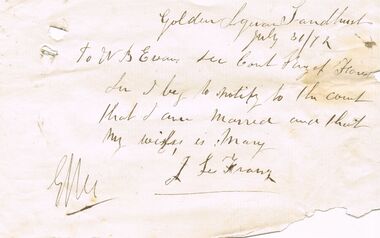 Golden Square Sandhurst
July 31/72
To W B Evans Sec Court
Sir I beg to notify to the court
that I am married and that
my wifes is Mary
J Le Franz